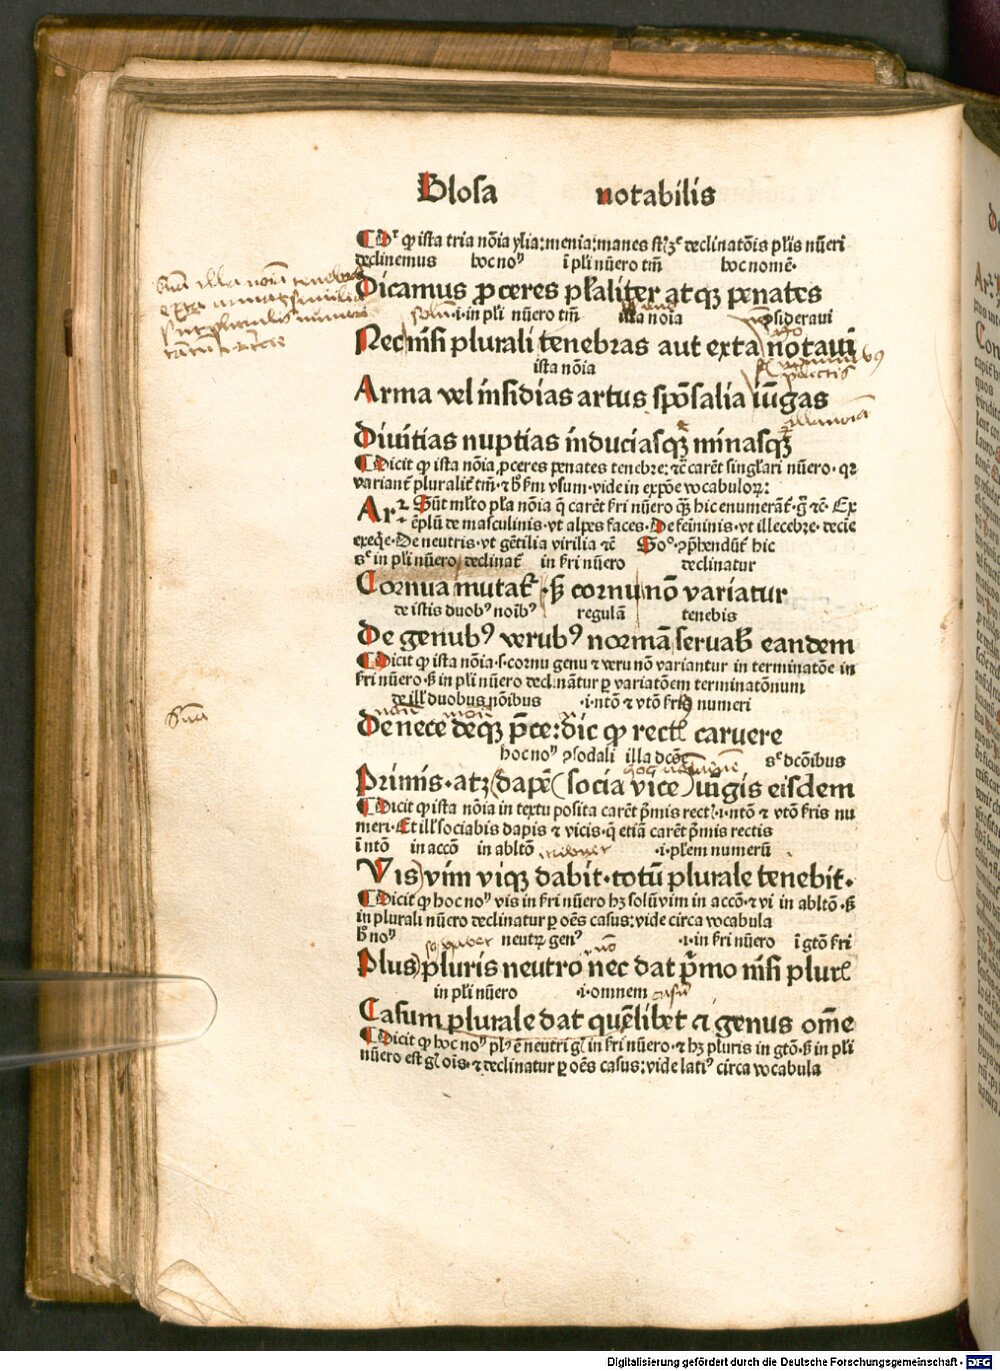 Glosa notabilis
¶ Dr̄ qꝫ ista tria nōīa ylia: menia: manes st̄ ꝫͤ declinatōis pl̄is nūeri
declinemus hoc noꝫ ī pl̄i nūero tm̄ hoc nomē·
Dicamus ꝓceres pl̄aliter atqꝫ penates
·i·in pl̄i nūero tm̄ illa nōia ↄsideraui
Nec nisi plurali tenebras aut exta notaui
ista nōia
Arma vel insidias artus spōsalia iūgas
Diuitias nuptias induciasqꝫ minasqꝫ
¶ Dicit ꝙ ista nōia, ꝓceres penates tenebre: ⁊c̄ carēt singl̄ari nūero· qꝛ
variant̄ pluralit̄ tm̄· ⁊ h̄ fm̄ vsum· vide in expōe vocabuloꝝ:
Arꝛ· Sūt ml̄to pl̄a nōia q̄ carēt sr̄i nūero qꝫ hic enumerāt̄· ḡ ⁊c̄· Ex
ēplū de masculinis· vt alpes faces· De feīninis· vt illecebre· decie
exeq̄e· De neutris· vt gētilia virilia ⁊c̄ Soᵒ· ꝓp̄hendūt̄ hic
sͤ in pl̄i nūero declinat̄ in sr̄i nūero declinatur
Cornua mutat̄ · s̄ꝫ cornu nō variatur
de istis duobꝰ noībꝰ regulā tenebis
De genubꝰ verubꝰ normā seruab̄ eandem
¶ Dicit ꝙ ista nōia ·s· cornu genu ⁊ veru nō variantur in terminatōe in
sr̄i nūero· s̄ꝫ in pl̄i nūero declināntur ꝑ variatōem terminatōnum
de ill̄ duobus nōibus ·i·ntō ⁊ vtō sr̄is numeri
De nece deqꝫ p̄ce: dic ꝙ rect̄ caruere
hoc noꝫ ↄsodali illa dcōe sͤ dcōibus
Primis· atꝫ dape (socia vice) iūgis eisdem
¶ Dicit ꝙ ista nōia in textu posita carēt p̄mis rect̄·i·ntō ⁊ vtō sr̄is nu
meri· Et ill̄ sociabis dapis ⁊ vicis· q̄ etiā carēt p̄mis rectis
ī ntō in accō in abltō ·i·pl̄em numerū
Vis) vim viqꝫ dabit· totū plurale tenebit·
¶ Dicit ꝙ hoc noꝫ vis in sr̄i nūero hꝫ solū vim in accō· ⁊ vi in abltō· s̄ꝫ
in plurali nūero declinatur ꝑ oēs casus: vide circa vocabula
h̄ noꝫ neutꝝ genꝰ ·i·in sr̄i nūero ī gtō sr̄i
Plus) pluris neutro nec dat p̄mo nisi plur̄
in pl̄i nūero ·i·omnem
Casum plurale dat quēlibet ⁊ genus om̄e
¶ Dicit ꝙ hoc noꝫ plꝰ ē neutri gn̄ in sr̄i nūero· ⁊ hꝫ pluris in gtō· s̄ꝫ in pl̄i
nūero est gn̄ ois· ⁊ declinatur ꝑ oēs casus: vide latiꝰ circa vocabula
Digitalisierung gefördert durch die Deutsche Forschungsgemeinschaft - DFG